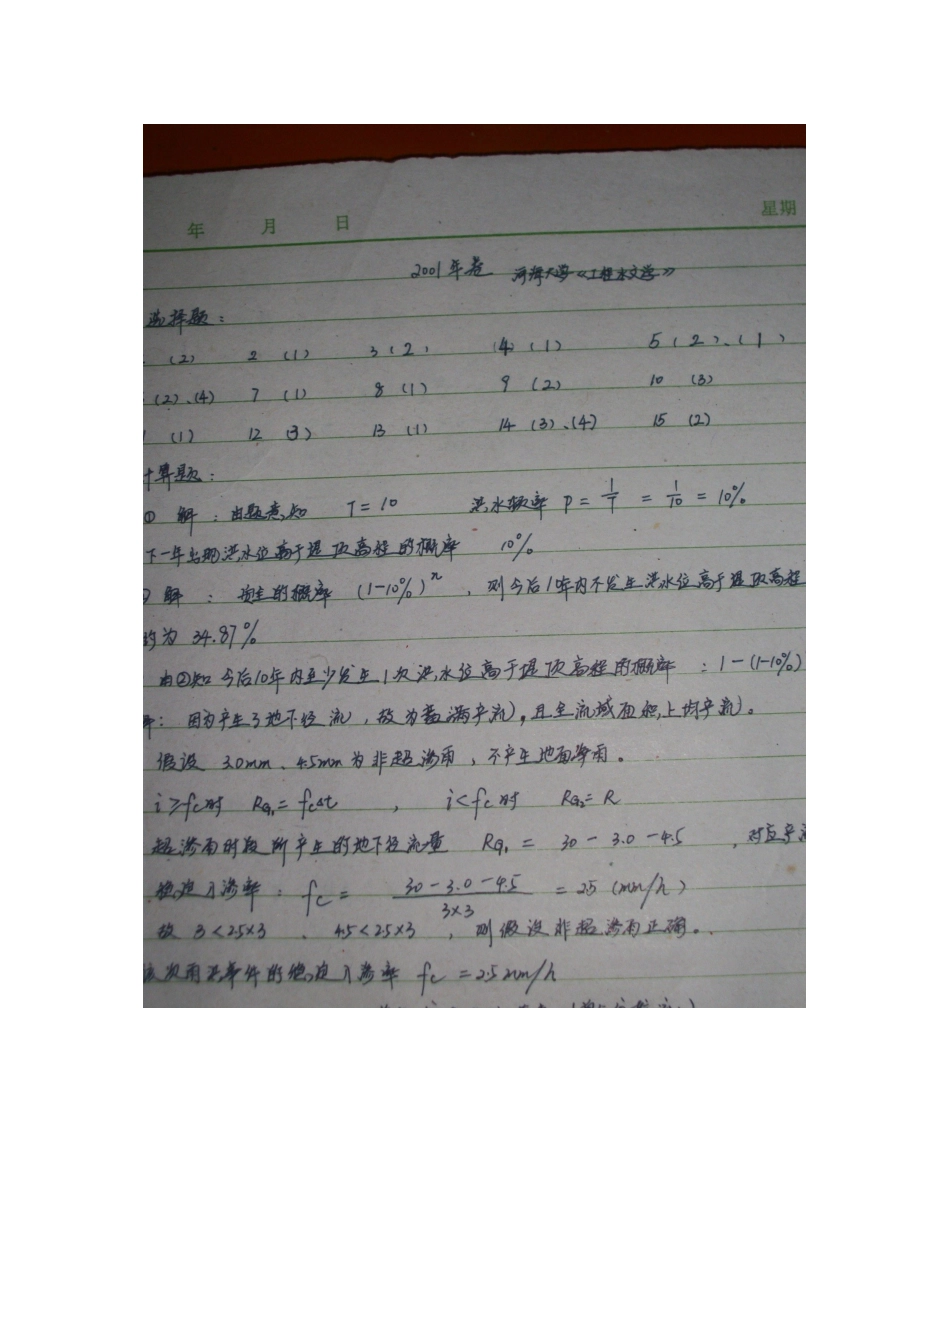 年 月 日 星期
2001年卷 河海大学《工程水文学》
选择题：
(2) 2 (1) 3 (2) (4) (1) 5 (2)、(1)
(2)、(4) 7 (1) 8 (1) 9 (2) 10 (3)
(1) 12 (3) 13 (1) 14 (3)、(4) 15 (2)
计算题：
① 解：由题意知 T=10 洪水频率 P = 1/T = 1/10 = 10%
下一年出现洪水位高于堤顶高程的概率 10%
解： 的概率 (1-10%)^n ，则今后10年内不发生洪水位高于堤顶高程
约为 34.87%
由②知 今后10年内至少发生1次洪水位高于堤顶高程的概率：1-(1-10%)
解：因为产生了地下径流，故为蓄满产流，且全流域面积上均产流。
假设 3.0mm、4.5mm为非超渗雨，不产生地面净雨。
i≥fc时 RG₁=fcΔt ， i<fc时 RG₂=R
超渗雨时段所产生的地下径流量 RG₁ = 30-3.0-4.5 ，对应产流
稳定入渗率：fc = (30-3.0-4.5)/(3×3) = 2.5 (mm/h)
故 3<2.5×3 、 4.5<2.5×3 ，则假设非超渗雨正确。
该次雨洪事件的稳定入渗率 fc = 2.5mm/h